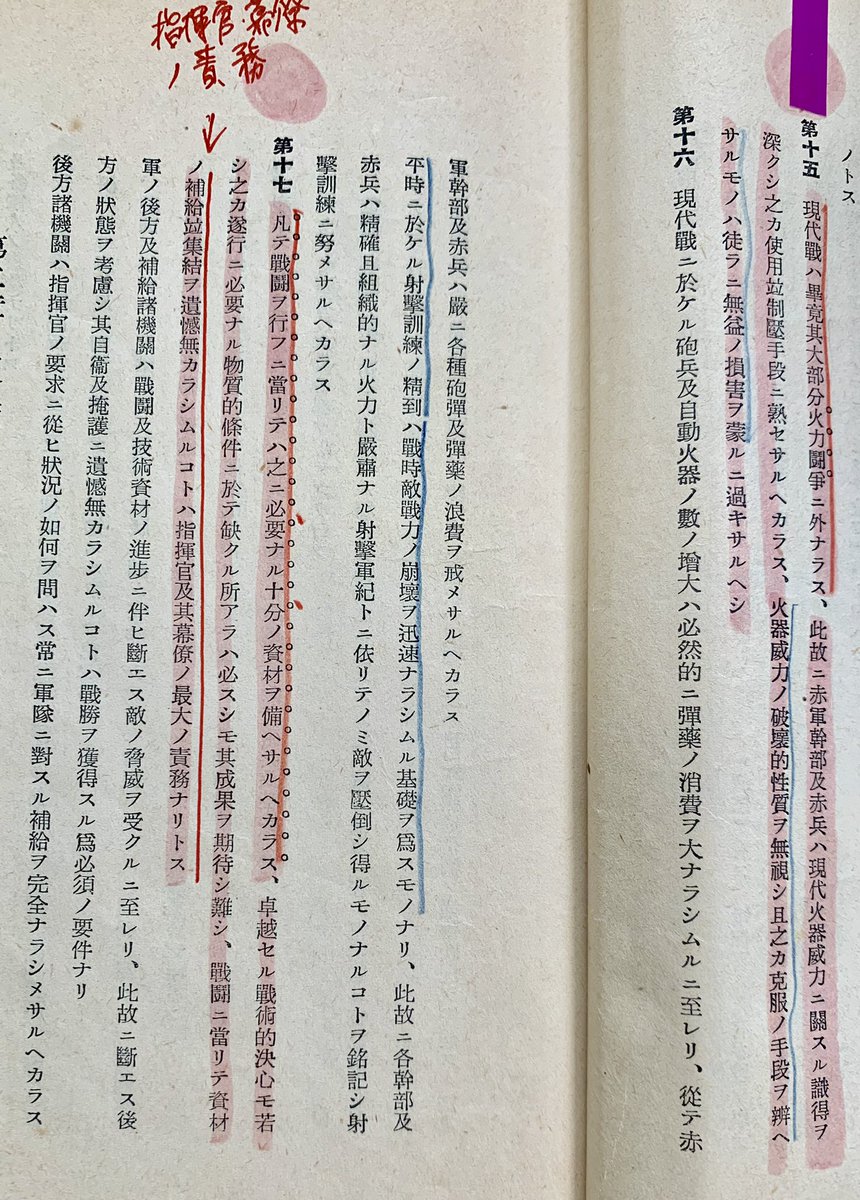 ノトス
第十五　現代戰ハ畢竟其大部分火力鬪爭ニ外ナラス、此故ニ赤軍幹部及赤兵ハ現代火器威力ニ關スル識得ヲ
深クシ之カ使用竝制壓手段ニ熟セサルヘカラス、火器威力ノ破壞的性質ヲ無視シ且之カ克服ノ手段ヲ辨ヘ
サルモノハ徒ラニ無益ノ損害ヲ蒙ルニ過キサルヘシ
第十六　現代戰ニ於ケル砲兵及自動火器ノ數ノ增大ハ必然的ニ彈藥ノ消費ヲ大ナラシムルニ至レリ、從テ赤
軍幹部及赤兵ハ嚴ニ各種砲彈及彈藥ノ浪費ヲ戒メサルヘカラス
平時ニ於ケル射擊訓練ノ精到ハ戰時敵戰力ノ崩壞ヲ迅速ナラシムル基礎ヲ爲スモノナリ、此故ニ各幹部及
赤兵ハ精確且組織的ナル火力ト嚴肅ナル射擊軍紀トニ依リテノミ敵ヲ壓倒シ得ルモノナルコトヲ銘記シ射
擊訓練ニ努メサルヘカラス
指揮官・幕僚
ノ責務
第十七　凡テ戰鬪ヲ行フニ當リテハ之ニ必要ナル十分ノ資材ヲ備ヘサルヘカラス、卓越セル戰術的決心モ若
シ之カ遂行ニ必要ナル物質的條件ニ於テ缺クル所アラハ必スシモ其成果ヲ期待シ難シ、戰鬪ニ當リテ資材
ノ補給竝集結ヲ遺憾無カラシムルコトハ指揮官及其幕僚ノ最大ノ責務ナリトス
軍ノ後方及補給諸機關ハ戰鬪及技術資材ノ進步ニ伴ヒ斷エス敵ノ脅威ヲ受クルニ至レリ、此故ニ斷エス後
方ノ狀態ヲ考慮シ其自衞及掩護ニ遺憾無カラシムルコトハ戰勝ヲ獲得スル爲必須ノ要件ナリ
後方諸機關ハ指揮官ノ要求ニ從ヒ狀況ノ如何ヲ問ハス常ニ軍隊ニ對スル補給ヲ完全ナラシメサルヘカラス